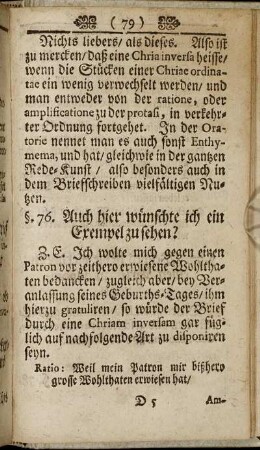 (79)
Nichts liebers/ als dieses. Also ist
zu mercken/ daß eine Chria inversa heisse/
wenn die Stücken einer Chriae ordina-
tae ein wenig verwechselt werden/ und
man entweder von der ratione, oder
amplificatione zu der protasi, in verkehr-
ter Ordnung fortgehet. In der Ora-
torie nennet man es auch sonst Enthy-
mema, und hat/ gleichwie in der gantzen
Rede-Kunst / also besonders auch in
dem Brieffschreiben vielfältigen Nu-
tzen.
§. 76. Auch hier wünschte ich ein
Exempel zu sehen?
Z. E. Ich wolte mich gegen einen
Patron vor zeithero erwiesene Wohltha-
ten bedancken/ zugleich aber/ bey Ver-
anlassung seines Geburths-Tages/ ihm
hierzu gratuliren/ so würde der Brief
durch eine Chriam inversam gar füg-
lich auf nachfolgende Art zu disponiren
seyn.
Ratio: Weil mein Patron mir bißhero
grosse Wohlthaten erwiesen hat/
D 5 Am-